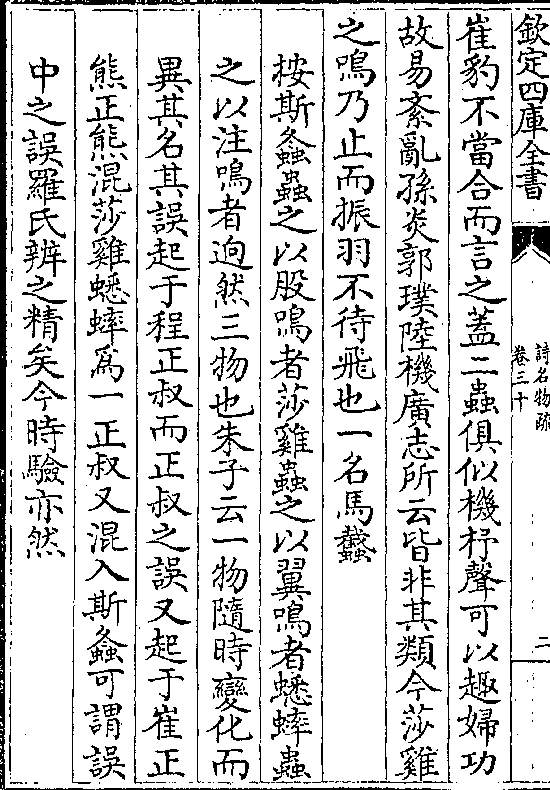 欽定四庫全書
詩名物疏
卷三十
二
崔豹不當合而言之蓋二蟲俱似機杼聲可以趣婦功
故易紊亂孫炎郭璞陸機廣志所云皆非其類今莎雞
之鳴乃止而振羽不待飛也一名馬𧔧
按斯螽蟲之以股鳴者莎雞蟲之以翼鳴者蟋蟀蟲
之以注鳴者逈然三物也朱子云一物隨時變化而
異其名其誤起于程正叔而正叔之誤又起于崔正
熊正熊混莎雞蟋蟀爲一正叔又混入斯螽可謂誤
中之誤羅氏辨之精矣今時驗亦然